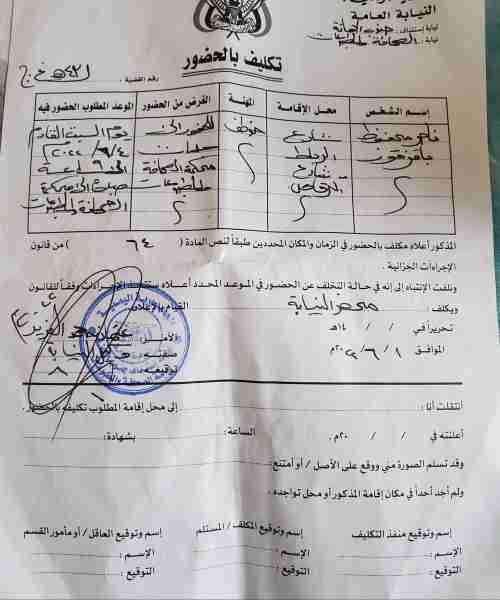 النيابة العامة
نيابة إستئناف: جنوب الأمانة
نيابة: الصحافة والمطبوعات
تكليف بالحضور
رقم القضية:
إسم الشخص
محل الإقامة
المهنة
الغرض من الحضور
الموعد المطلوب الحضور فيه
محفوظ
شارع
موظف
للحضور إلى
يوم السبت القادم
الرباط
جلسات
٢٠٢٢/٦/٤
شارع
محكمة الصحافة
الساعة
والمطبوعات
صباحاً إلى محكمة
الصحافة والمطبوعات
المذكور أعلاه مكلف بالحضور في الزمان والمكان المحددين طبقاً لنص المادة ( ٦٤ ) من قانون
الإجراءات الجزائية .
ونلفت الإنتباه إلى إنه في حالة التخلف عن الحضور في الموعد المحدد أعلاه ستتخذ الإجراءات وفقاً للقانون
ويكلف : محضر النيابة القيام بالإعلان
تحريراً في / / ١٤هـ
الآمر:
الموافق ١ / ٦ / ٢٠٢٢م
صفته:
توقيعه:
إنتقلت أنا : إلى محل إقامة المطلوب تكليفه بالحضور.
أعلنته في / / ٢٠م. الساعة : بشهادة:
وقد تسلم الصورة مني ووقع على الأصل / أو أمتنع:
ولم أجد أحداً في مكان إقامة المذكور أو محل تواجده .
إسم وتوقيع منفذ التكليف
إسم وتوقيع المكلف / المستلم
إسم وتوقيع العاقل / أو مأمور القسم
الإسم :
الإسم :
الإسم :
التوقيع :
التوقيع :
التوقيع :